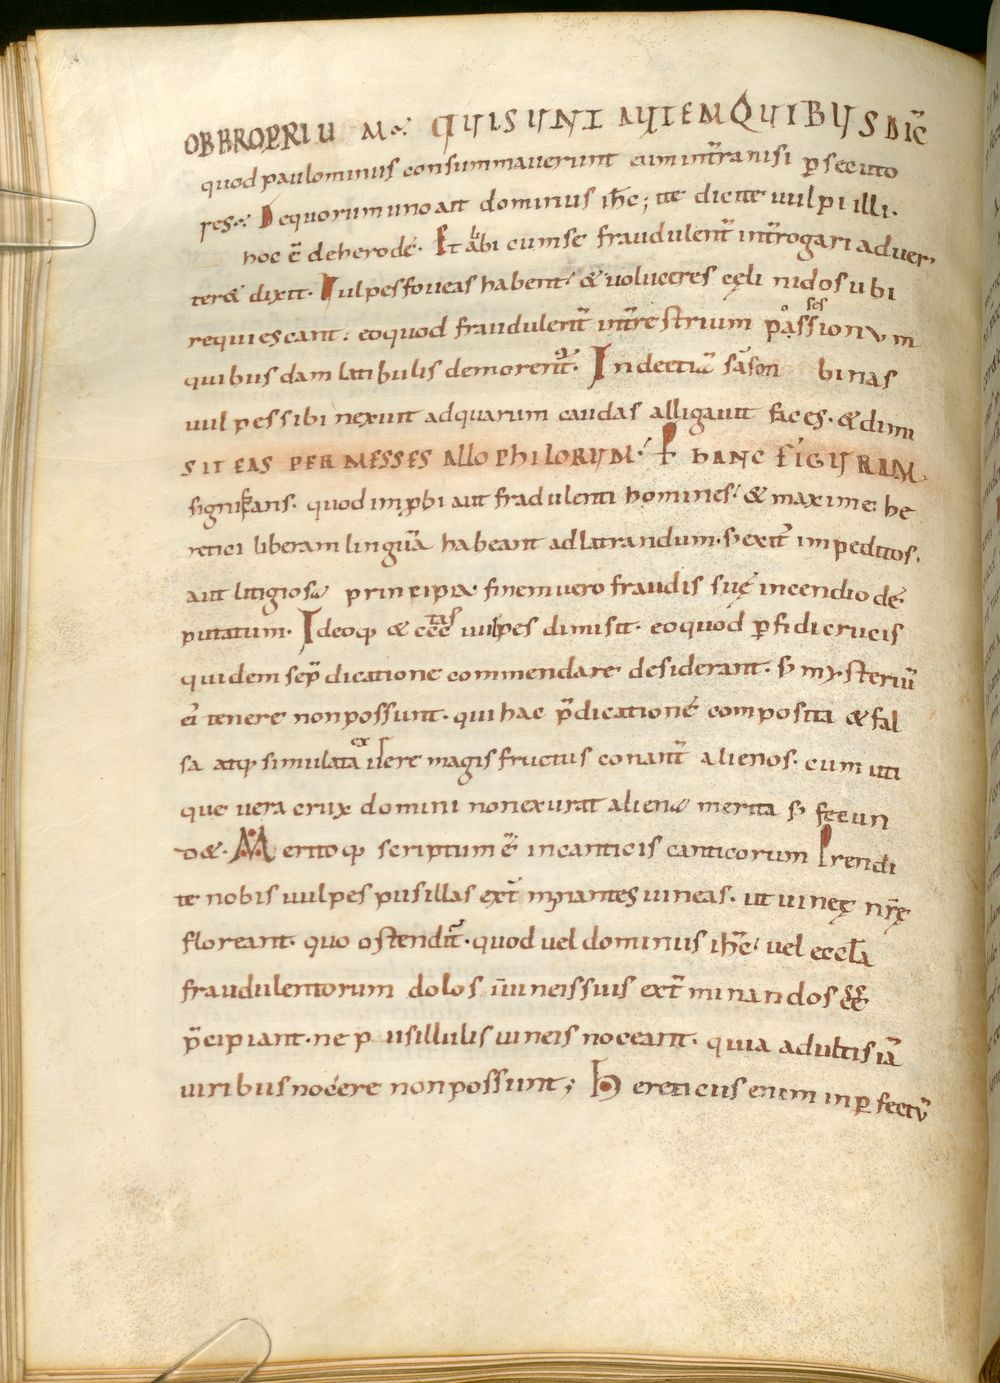 OBBROPRIU M∴ QUI SUNT AUTEM QUIBUS DIC̄
quod paulominus consummauerunt eum inṫra nisi ꝑsecuto
res∴ Dequorum uno ait dominus ih̄c; ite dicite uulpi illi.
hoc ē deherode. Et abi cumse fraudulent̄ int̄rogari aduer
teret dixit. Uulpes foueas habent. & uolucres cęli nidos ubi
requiescant: eoquod fraudulent̄ int̄restrium passionum
quibusdam latibulis demorent̄. Indeetiā sāson binas
uulpes sibi nexuit adquarum caudas alligauit faces. & dimi
SIT EAS PER MESSES ALLOPHILORUM. HANC FIGURAM
significans. quod inꝓbi aut fradulenti homines. & maxime he
retici liberam linguā habeant adlatrandum. s; exit̄ impeditos.
aut litigiosa principia. finem uero fraudis suę incendio de
putatum. Ideoq; & uulpes dimisit. eoquod ꝑfidi crucis
quidem se p̄dicatione commendare desiderant. s; mysteriū
ei tenere nonpossunt. qui hac p̄dicatione composita & fal
sa atq; simulata uere magis fructus conant̄ alienos. cum uti
que uera crux domini non exurat aliena merita s; fecun
det. Meritoq; scriptum ē incanticis canticorum Prendi
te nobis uulpes pusillas ext̄minantes uineas. ut uineę nr̄ę
floreant. quo ostendit̄. quod uel dominus ih̄c. uel eccl̄a
fraudulentorum dolos ī uineis suis ext̄minandos
p̄cipiant. ne pusillulis uineis noceant. quia adultis iā
uiribus nocere nonpossunt; Hereticus enim inꝑfectū